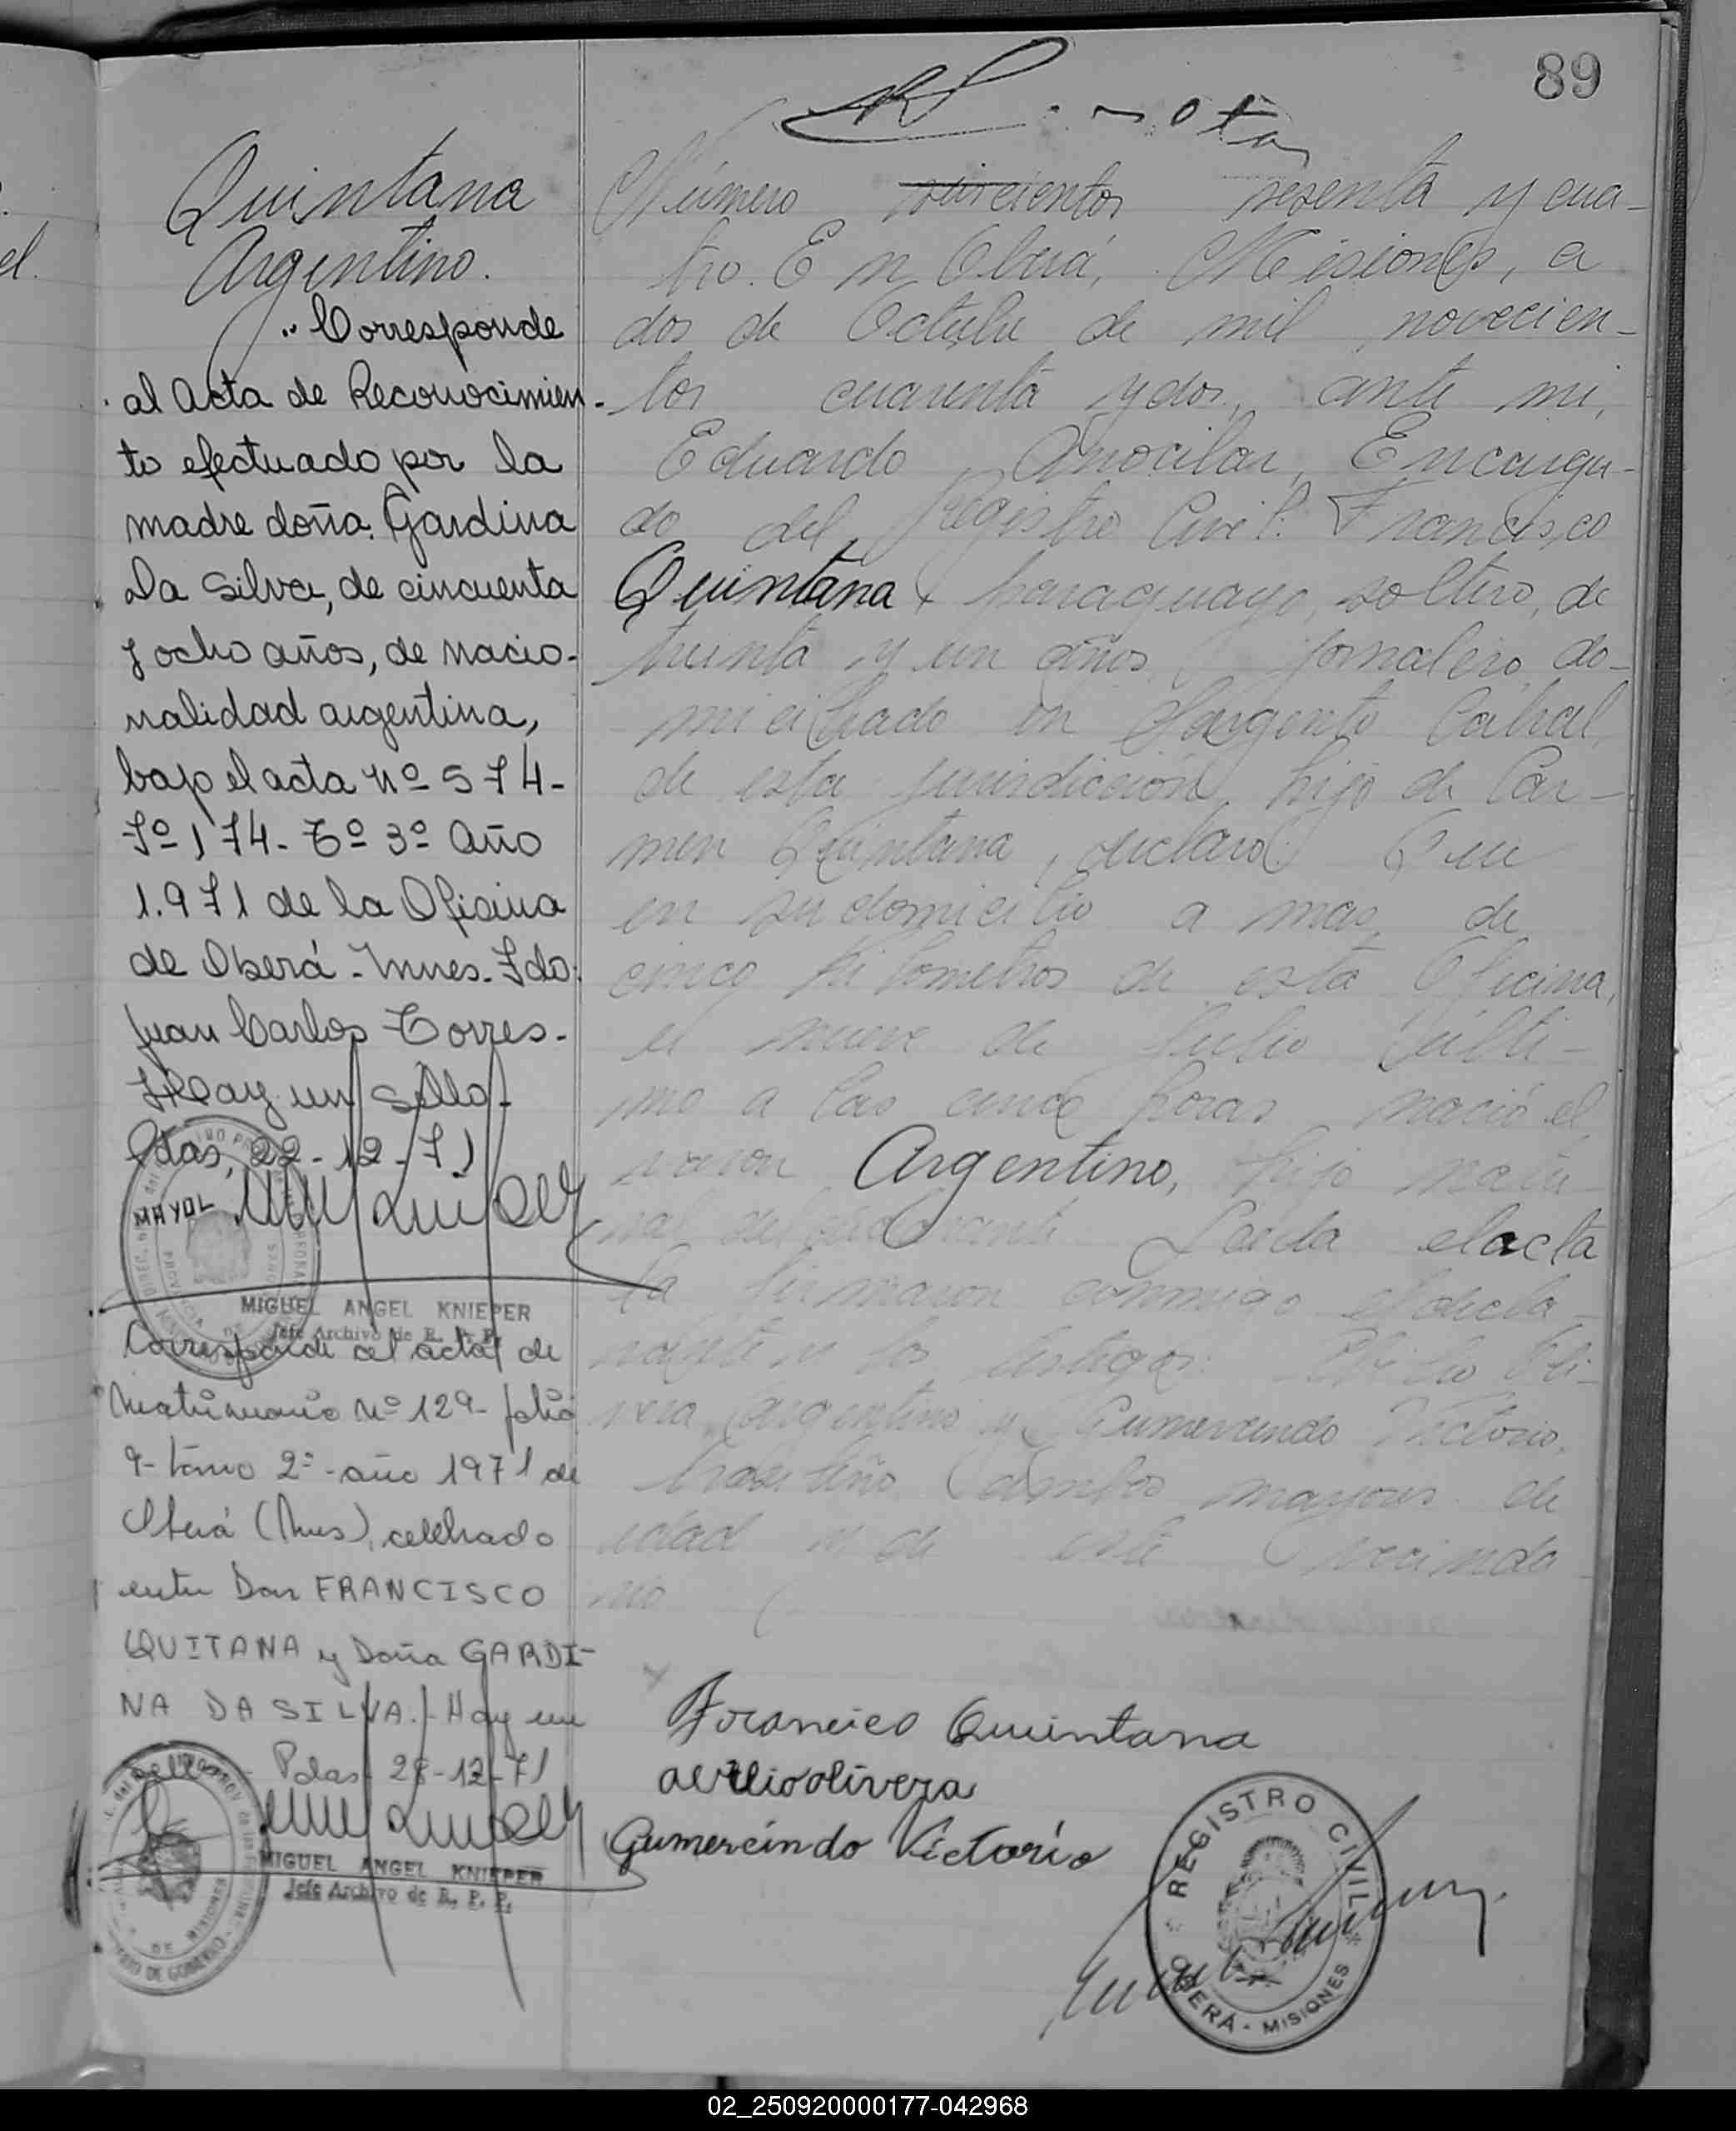 89
Quintana
Argentino.
"Corresponde
al Acta de Reconocimien-
to efectuado por la
madre doña: Gardina
Da Silva, de cincuenta
y ocho años, de nacio-
nalidad argentina,
bajo el acta nº 574-
Fº 174- Tº 3º Año
1.971 de la Oficina
de Oberá - Mnes. Fdo:
Juan Carlos Torres-
Hay un sello-
Pdas, 22-12-71
MAYOL
MIGUEL ANGEL KNIEPER
Jefe Archivo de R. P. P.
Corresponde al acta de
Matrimonio Nº 129- folio
9- tomo 2º- año 1971 de
Oberá (Mnes), celebrado
entre Don FRANCISCO
QUITANA y Doña GARDI-
NA DA SILVA.- Hay un
sello- Pdas- 28-12-71
MIGUEL ANGEL KNIEPER
Jefe Archivo de R. P. P.
Número seiscientos sesenta y cua-
tro. En Oberá, Misiones, a
dos de Octubre de mil novecien-
tos cuarenta y dos, ante mi,
Eduardo Encarga-
do del Registro Civil: Francisco
Quintana paraguayo, soltero, de
treinta y un años, jornalero, do-
miciliado en Sargento Cabral
de esta jurisdicción, hijo de Car-
men Quintana, declaró: Que
en su domicilio a mas de
cinco kilometros de esta Oficina,
el nueve de Julio últi-
mo a las cinco horas nació el
varon Argentino, hijo natu
ral del declarante Leida el acta
la firmaron conmigo el decla-
rante y los testigos: Oli-
vera, argentino y Gumercindo Victorio,
brasileño, ambos mayores de
edad y de este vecinda
rio
Francico Quintana
avelio olivera
Gumercindo Victorio
REGISTRO CIVIL
OBERÁ - MISIONES
02_250920000177-042968